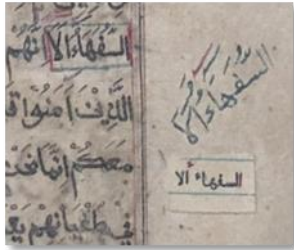 السُّفَهَاءُ اَلَا اِنَّهُمْ
الَّذِيْنَ اٰمَنُوْا قا
مَعَكُمْ اِنَّمَا نَحْنُ
فِيْ طُغْيَانِهِمْ يَعْ
السفهاءُ اَلَا
السفهاء ألا